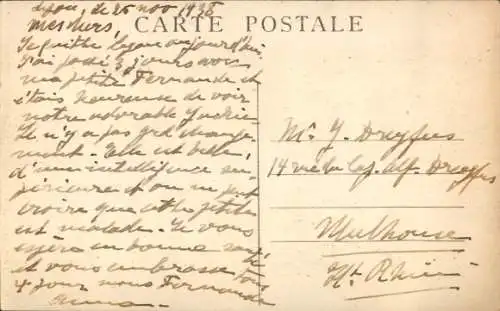 Lyon, le 25 nov 1935
CARTE POSTALE
Mes chers,
Je quitte Lyon aujourd'hui.
J'ai passé 3 jours avec
ma petite Fernande et
étais heureuse de voir
notre adorable
Il n'y a pas grd change-
ment. Elle est belle,
d'une intelligence su-
périeure et on ne peut
croire que cette petite
est malade. Je vous
espère en bonne santé
et vous embrasse
Fernande
Mr. J. Dreyfus
14 rue du Cap. Alf. Dreyfus
Mulhouse
Ht Rhin